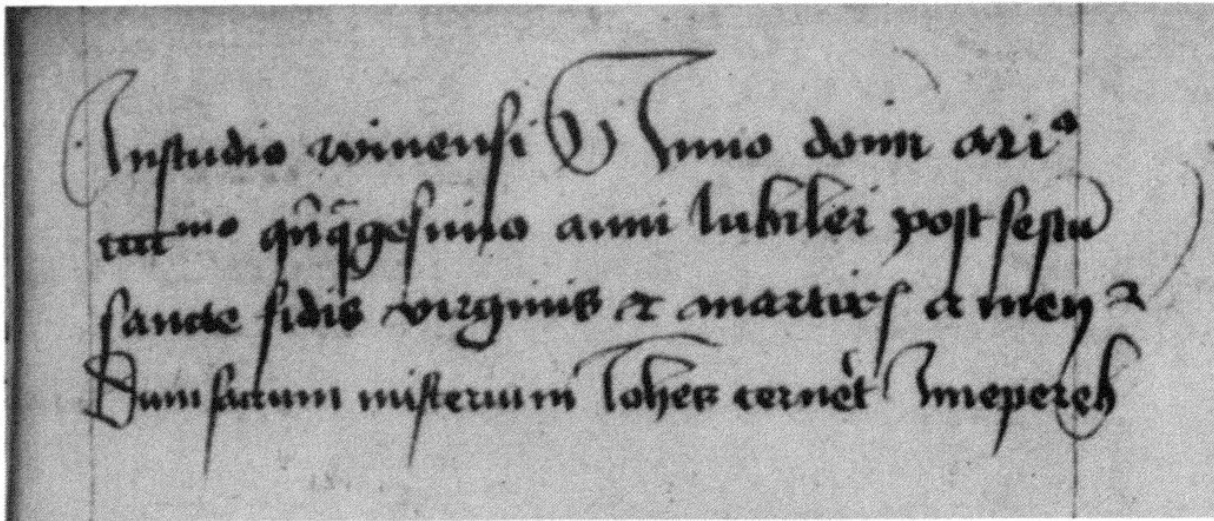 In studio winensi Anno domini
cccc^mo qūq̄gesimo anni Iubilei post festū
sancte fidis virginis et martiris et
Dum sacrum misterium Iohēs cernet